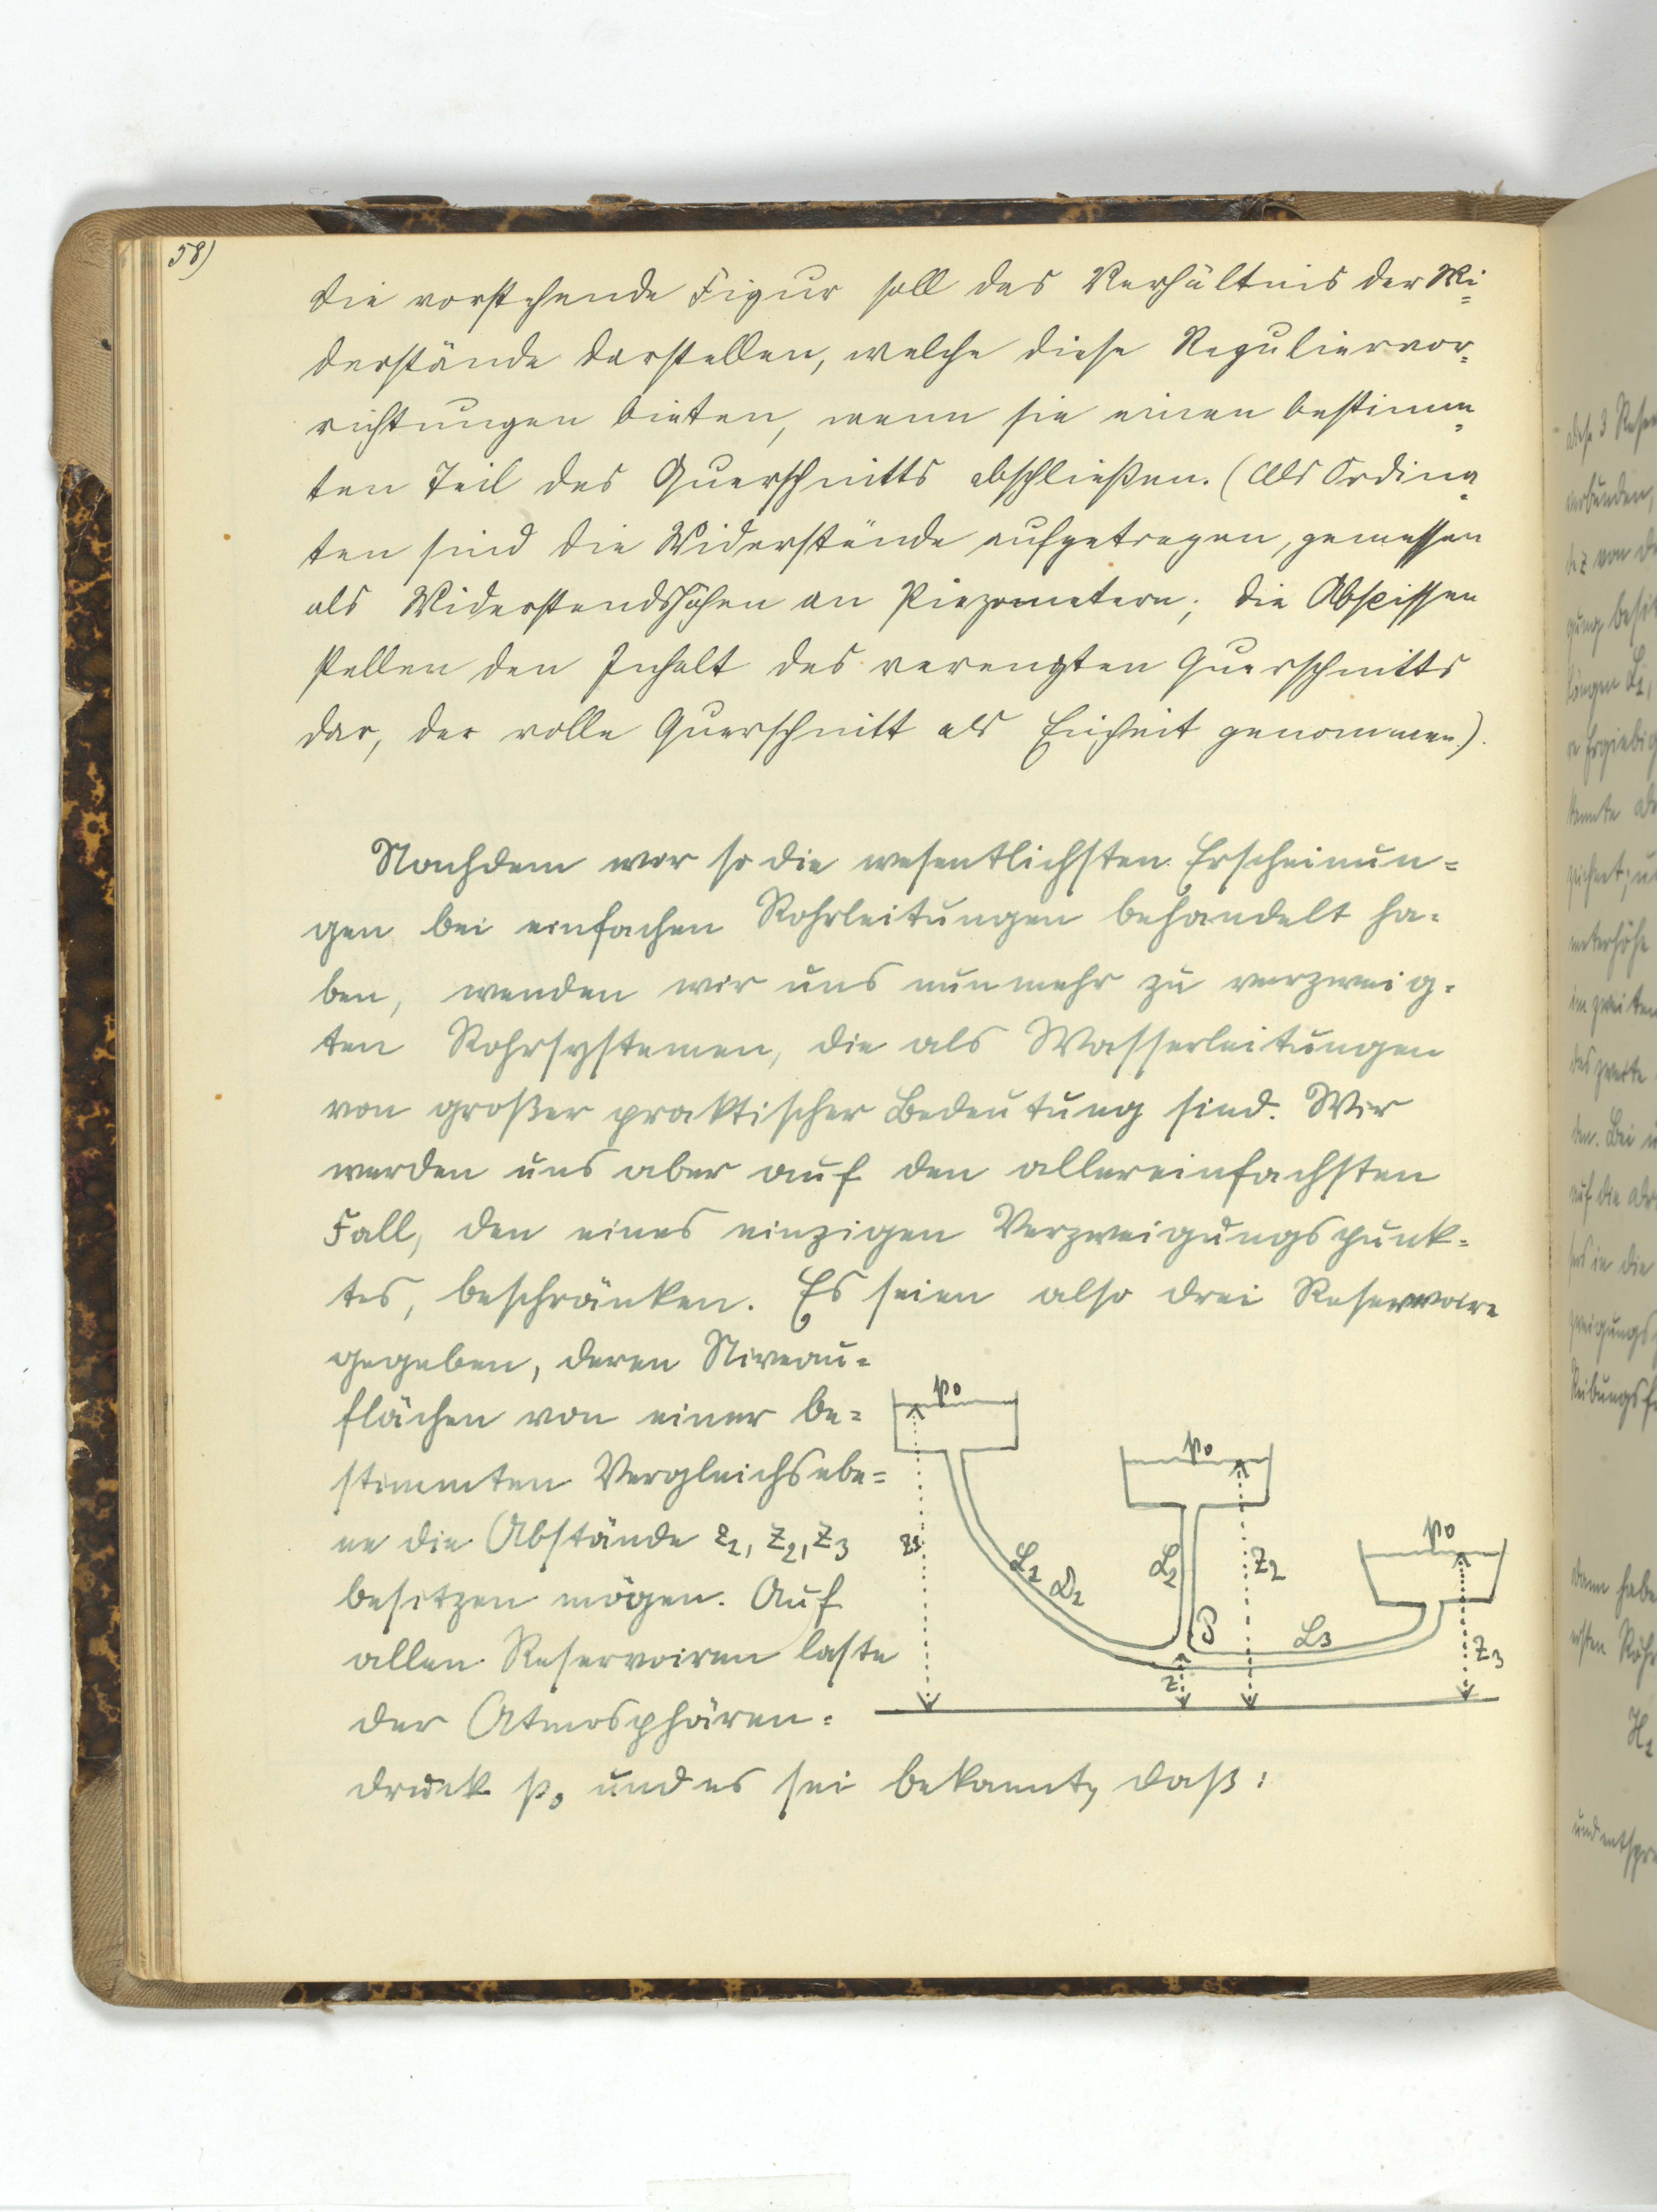 58)
Die vorstehende Figur soll das Verhältnis der Wi=
derstände darstellen, welche diese Reguliervor=
richtungen bieten, wenn sie einen bestimm=
ten Teil des Querschnitts abschließen. (Als Ordina=
ten sind die Widerstände aufgetragen, gemessen
als Widerstandshöhen an Piezometern; die Abscissen
stellen den Inhalt des verengten Querschnitts
dar, der volle Querschnitt als Einheit genommen).
Nachdem wir so die wesentlichsten Erscheinun=
gen bei einfachen Rohrleitungen behandelt ha=
ben, wenden wir uns nunmehr zu verzweig=
ten Rohrsystemen, die als Wasserleitungen
von großer praktischer Bedeutung sind. Wir
werden uns aber auf den allereinfachsten
Fall, den eines einzigen Verzweigungspunk=
tes, beschränken. Es seien also drei Reservoire
gegeben, deren Niveau=
flächen von einer be=
stimmten Vergleichsebe=
ne die Abstände z1, z2, z3
besitzen mögen. Auf
allen Reservoiren laste
der Atmosphären=
druck p0 und es sei bekannt, daß:
p0
p0
p0
z1
L1 D1
L2
z2
P
L3
z3
z
diese 3
verbunden,
z von
gung
längen L1,